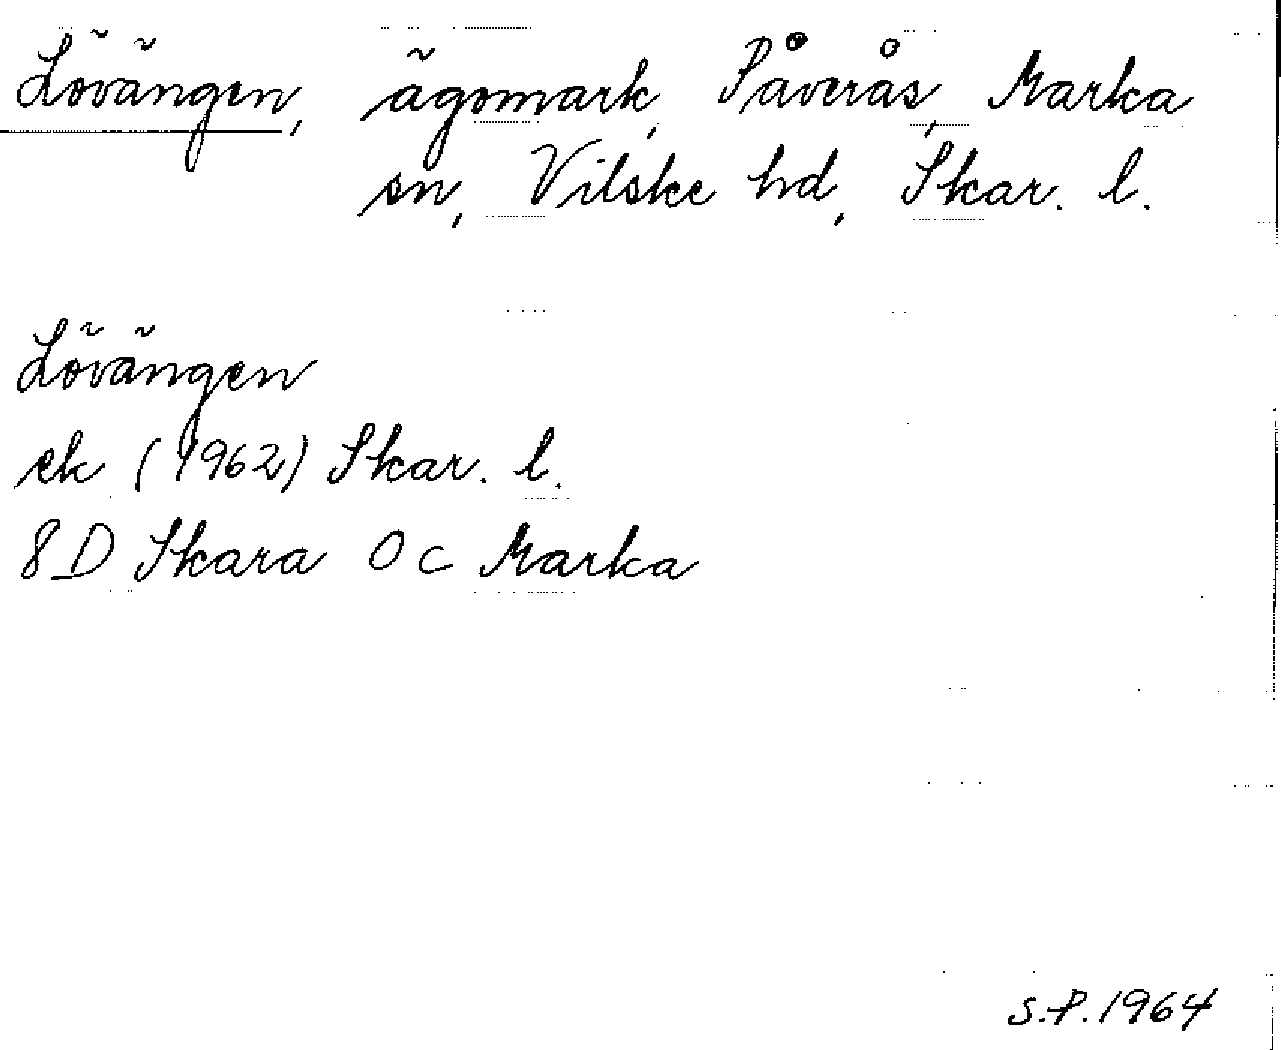 Lövängen, ägomark, Påverås, Marka
sn, Vilske hd, Skar. l.
Lövängen
ek (1962) Skar. l.
8D Skara 0c Marka
S.P. 1964